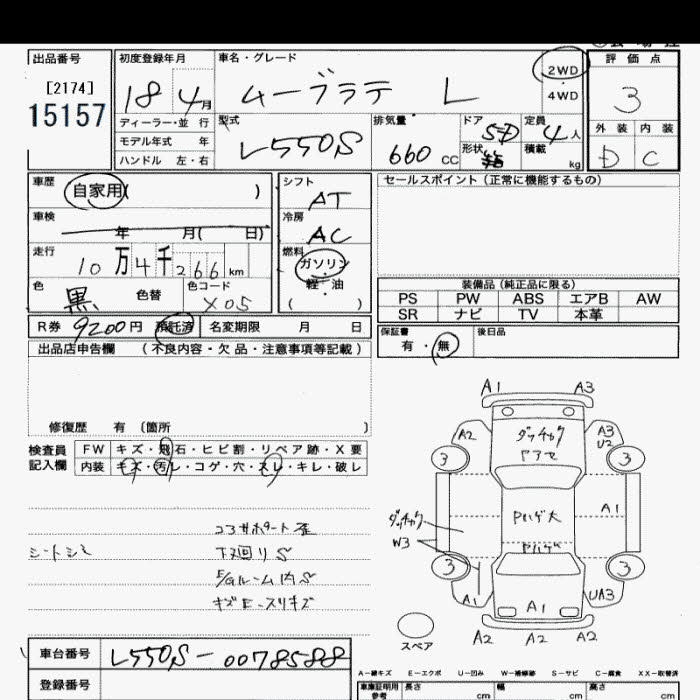 出品番号
[2174]
15157
初度登録年月
18 4月
ディーラー・並 行
モデル年式 年
ハンドル 左・右
車名・グレード
ムーブラテ L
2WD
4WD
型式
L550S
排気量
660 CC
ドア
5D
形状
定員
4人
積載
kg
評 価 点
3
外 装 内 装
D C
車歴
自家用( )
車検
年 月( 日)
走行
10万4千266km
色
黒
色替
色コード
X05
シフト
AT
冷房
AC
燃料
ガソリン
軽・油
( )
セールスポイント(正常に機能するもの)
装備品(純正品に限る)
PS PW ABS エアB AW
SR ナビ TV 本革
R券 9200円 預託済 名変期限 月 日
保証書
有・無
後日品
出品店申告欄 (不良内容・欠品・注意事項等記載)
修復歴 有 〔箇所 〕
検査員
記入欄
FW キズ・飛石・ヒビ割・リペア跡・X要
内装 キズ・汚レ・コゲ・穴・スレ・キレ・破レ
コアサポート歪
シートシミ
下廻りS
E/Gルーム内S
キズEースリキズ
A1 A3
A2
ダッチャク
ヤアセ
A3
U2
3 3
ダッチャク
W3
Pハゲ大
Pハゲ
A1
3 3
A1
A1
UA3
スペア
A2 A2 A2
車台番号
L550S-0078588
登録番号
A−線キズ E−エクボ U−凹み W−補修跡 S−サビ C−腐食 XX−取替済
車庫証明用
参考
長さ
cm
幅
cm
高さ
cm